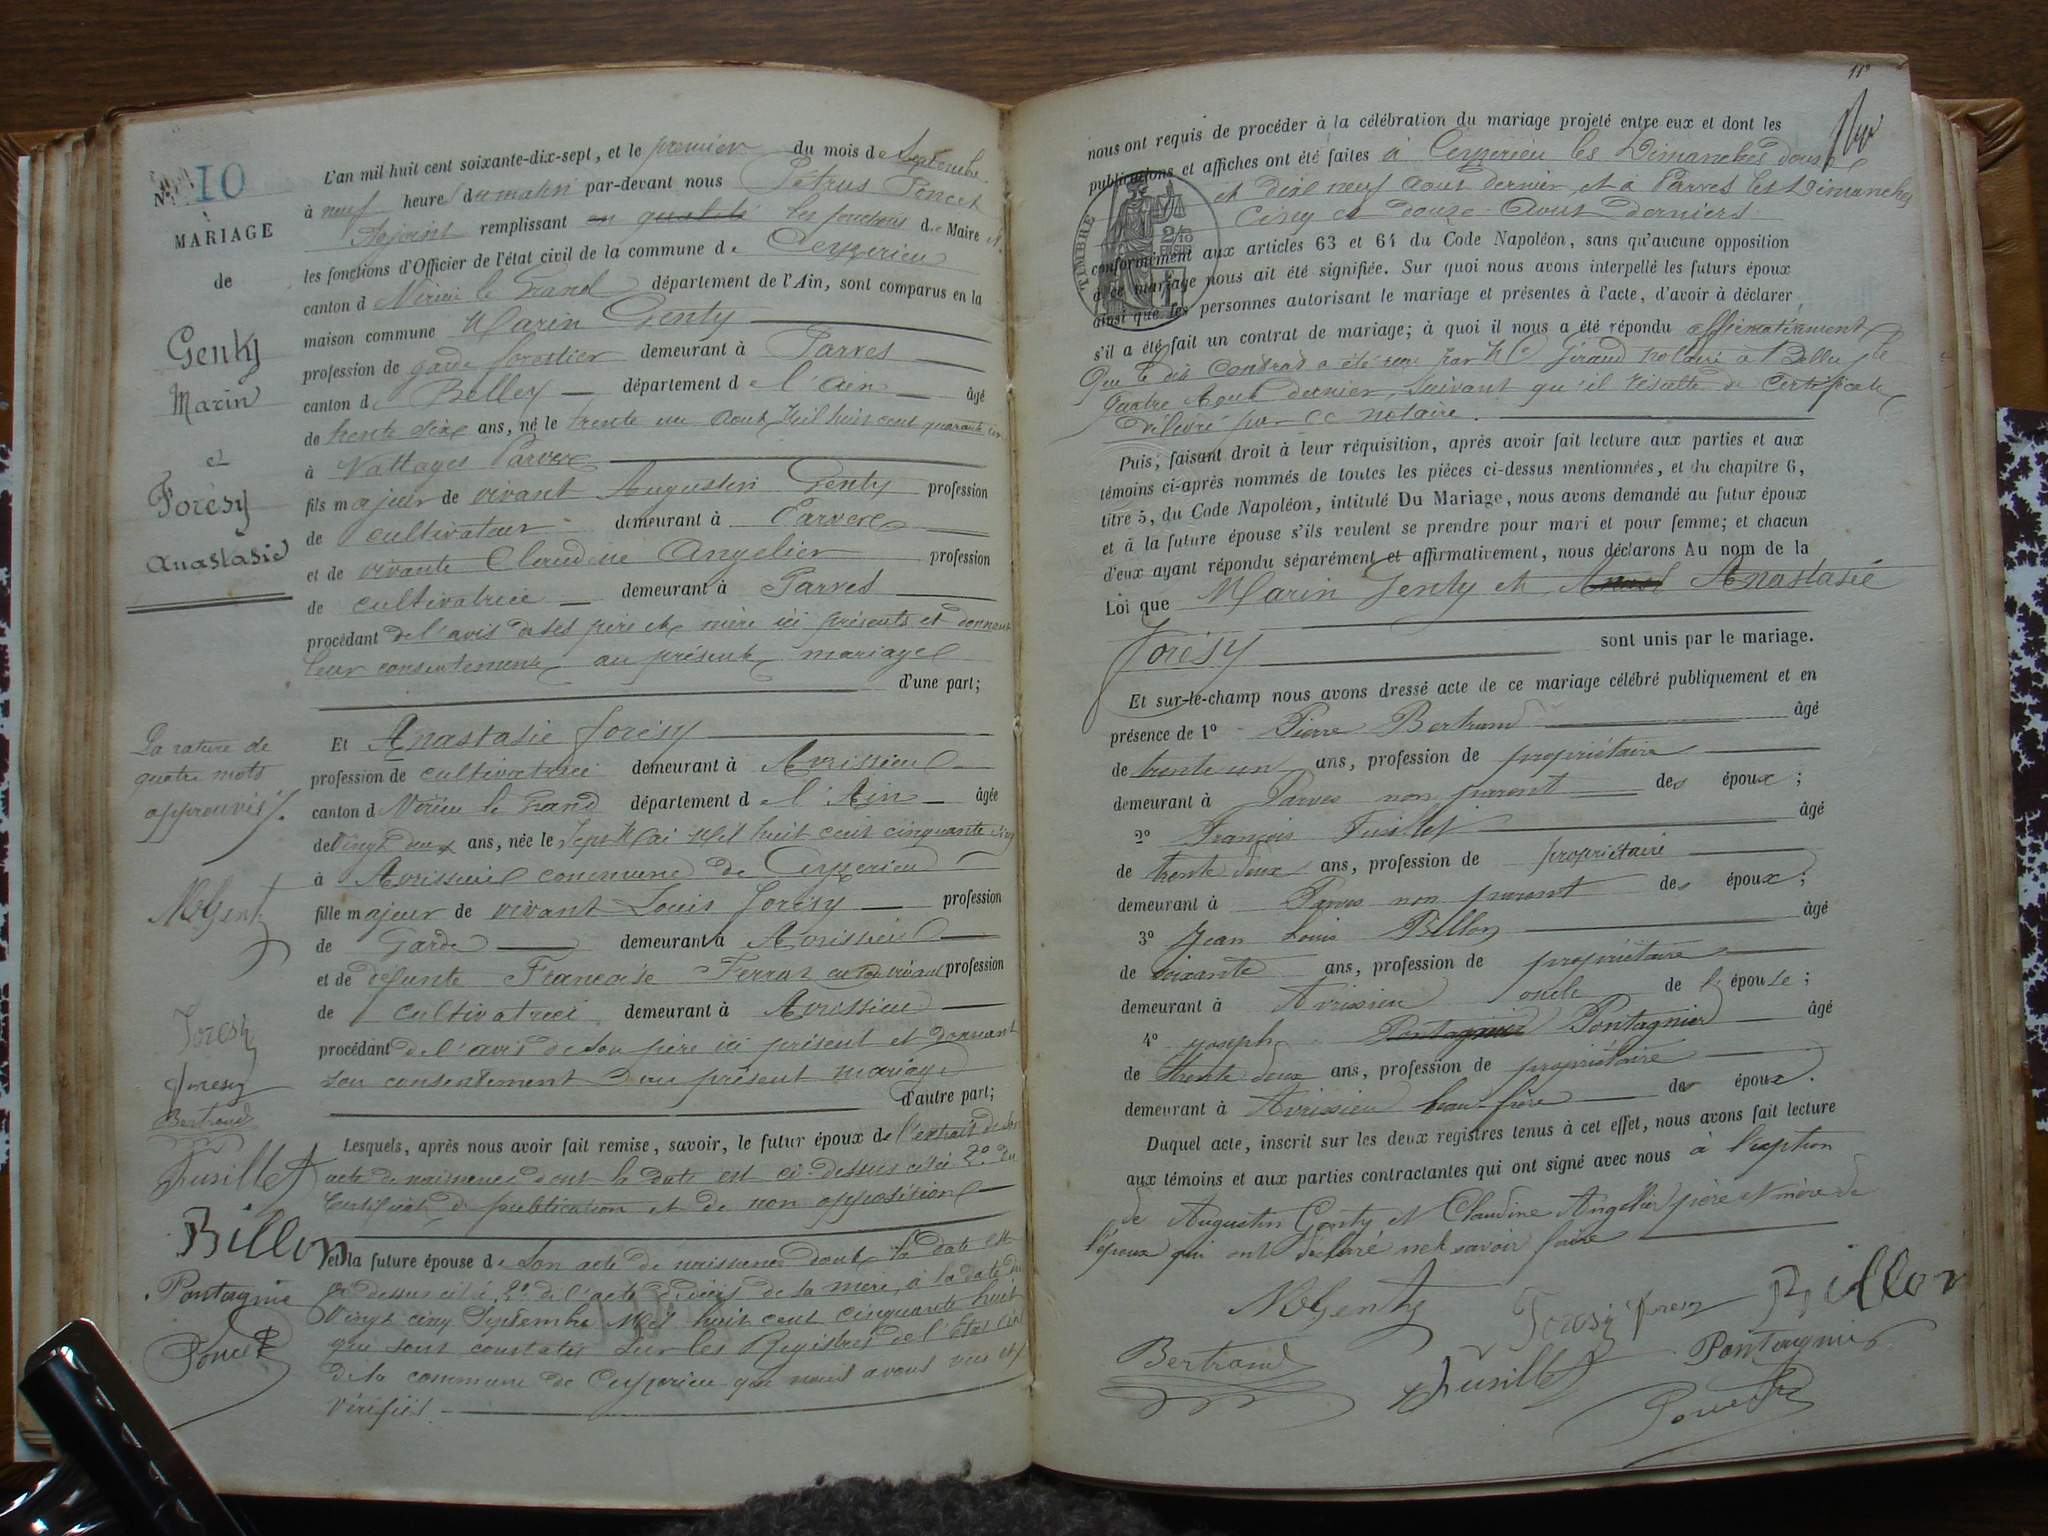 N° 10
MARIAGE
de
Genty
Marin
et
Forésy
Anastasie
L'an mil huit cent soixante-dix-sept, et le premier du mois de Septembre
à neuf heures du matin par-devant nous Pétrus Poncet
Adjoint remplissant en qualité les fonctions de Maire et
les fonctions d'Officier de l'état civil de la commune de Ceyzerieu
canton d Virieu le Grand département de l'Ain, sont comparus en la
maison commune Marin Genty
profession de garde forestier demeurant à Parves
canton de Belley département de l'Ain âgé
de trente deux ans, né le trente un Aout Mil huit cent quarante cinq
à Nattages Parves
fils majeur de vivant Augustin Genty profession
de cultivateur demeurant à Parves
et de vivante Claudine Angelier profession
de cultivatrice demeurant à Parves
procédant de l'avis de ses père et mère ici présents et donnant
leur consentement au présent mariage
d'une part;
La rature de
quatre mots
approuvés
Et Anastasie Forésy
profession de cultivatrice demeurant à Avrissieu
canton d Virieu le Grand département de l'Ain âgée
de Vingt deux ans, née le sept Mai Mil huit cent cinquante cinq
à Avrissieu commune de Ceyzerieu
fille majeur de vivant Louis Forésy profession
de Garde demeurant à Avrissieu
et de défunte Francoise Ferraz en son vivant profession
de cultivatrice demeurant à Avrissieu
procédant de l'avis de son père ici présent et donnant
son consentement au présent mariage
d'autre part;
Lesquels, après nous avoir fait remise, savoir, le futur époux de l'extrait de son
acte de naissance dont la date est ci dessus citée 2° du
Certificat de publication et de non opposition
et la future épouse de son acte de naissance dont la date est
ci dessus citée 2° de l'acte de décès de sa mère, à la date du
Vingt cinq Septembre Mil huit cent cinquante huit
qui sont constatés sur les Registres de l'état civil
de la commune de Ceyzerieu que nous avons vus et
vérifiés
MGenty
Foresy
Foresy
Bertrand
Fusillet
Billon
Pontagnie
Poncet
nous ont requis de procéder à la célébration du mariage projeté entre eux et dont les
publications et affiches ont été faites à Ceyzerieu les Dimanches douze
et dix neuf Aout dernier, et à Parves les Dimanches
Cinq et douze Aout derniers
TIMBRE
2/10
EN SUS
conformément aux articles 63 et 64 du Code Napoléon, sans qu'aucune opposition
à ce mariage nous ait été signifiée. Sur quoi nous avons interpellé les futurs époux
ainsi que les personnes autorisant le mariage et présentes à l'acte, d'avoir à déclarer
s'il a été fait un contrat de mariage; à quoi il nous a été répondu affirmativement
Que le dit contrat a été reçu par Me Giraud notaire à Belley le
quatre Aout dernier, suivant qu'il résulte du Certificat
délivré par ce notaire.
Puis, faisant droit à leur réquisition, après avoir fait lecture aux parties et aux
témoins ci-après nommés de toutes les pièces ci-dessus mentionnées, et du chapitre 6,
titre 5, du Code Napoléon, intitulé Du Mariage, nous avons demandé au futur époux
et à la future épouse s'ils veulent se prendre pour mari et pour femme; et chacun
d'eux ayant répondu séparément et affirmativement, nous déclarons Au nom de la
Loi que Marin Genty et Anast Anastasie
Forésy sont unis par le mariage.
Et sur-le-champ nous avons dressé acte de ce mariage célébré publiquement et en
présence de 1° Pierre Bertrand âgé
de trente un ans, profession de propriétaire
demeurant à Parves non parent des époux;
2° François Fusillet âgé
de trente deux ans, profession de propriétaire
demeurant à Parves non parent des époux;
3° Jean Louis Billon âgé
de soixante ans, profession de propriétaire
demeurant à Avrissieu oncle de l'épouse;
4° Joseph Pontagnier Pontagnier âgé
de trente deux ans, profession de propriétaire
demeurant à Avrissieu beau-frère des époux.
Duquel acte, inscrit sur les deux registres tenus à cet effet, nous avons fait lecture
aux témoins et aux parties contractantes qui ont signé avec nous à l'exeption
de Augustin Genty et Claudine Angelier père et mère de
l'époux qui ont déclaré ne le savoir faire
MGenty Foresy Foresy Billon
Bertrand Fusillet Pontagnie
Poncet